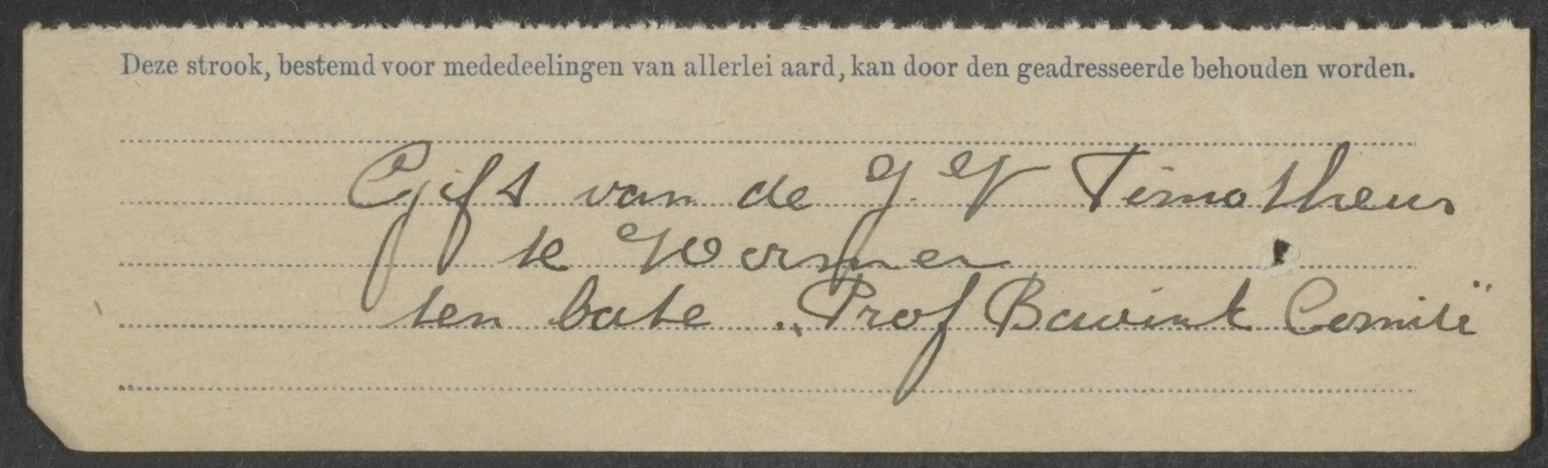 Deze strook, bestemd voor mededeelingen van allerlei aard, kan door den geadresseerde behouden worden.
Gift van de J. V Timotheus
te Wormer
ten bate „Prof Bavink Comité"